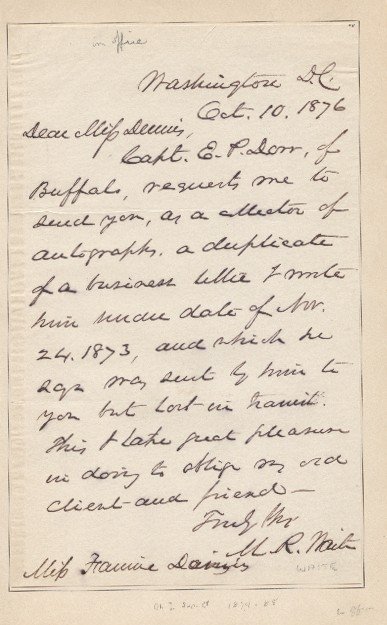 in office
Washington D.C.
Oct. 10. 1876
Dear Miss Dennis,
Capt. E. P. Dorr, of
Buffalo, requests me to
send you, as a collector of
autographs, a duplicate
of a business letter I wrote
him under date of Nov.
24. 1873, and which he
says was sent by him to
you but lost in transit.
This I take great pleasure
in doing to oblige my old
client and friend—
Truly &c
M. R. Waite
Miss Fannie Dennis
WAITE
1874-88
in office